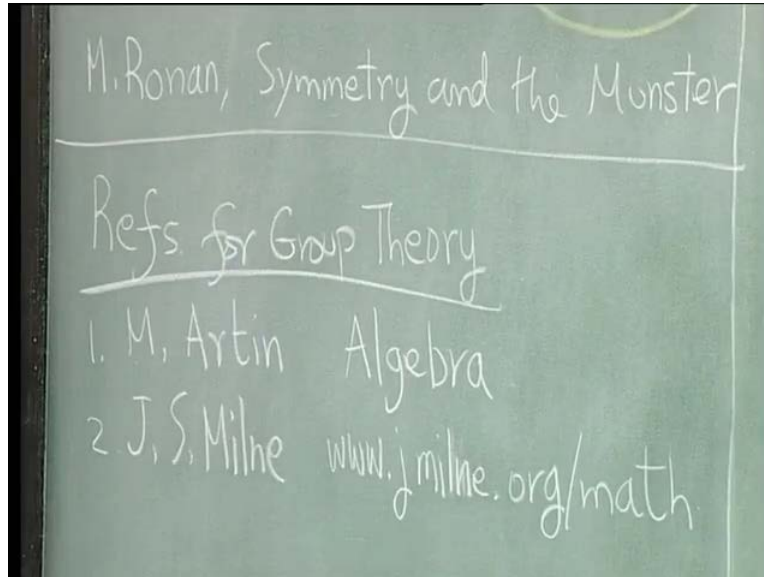 M. Ronan, Symmetry and the Monster
Refs. for Group Theory
1. M. Artin Algebra
2. J. S. Milne www.jmilne.org/math